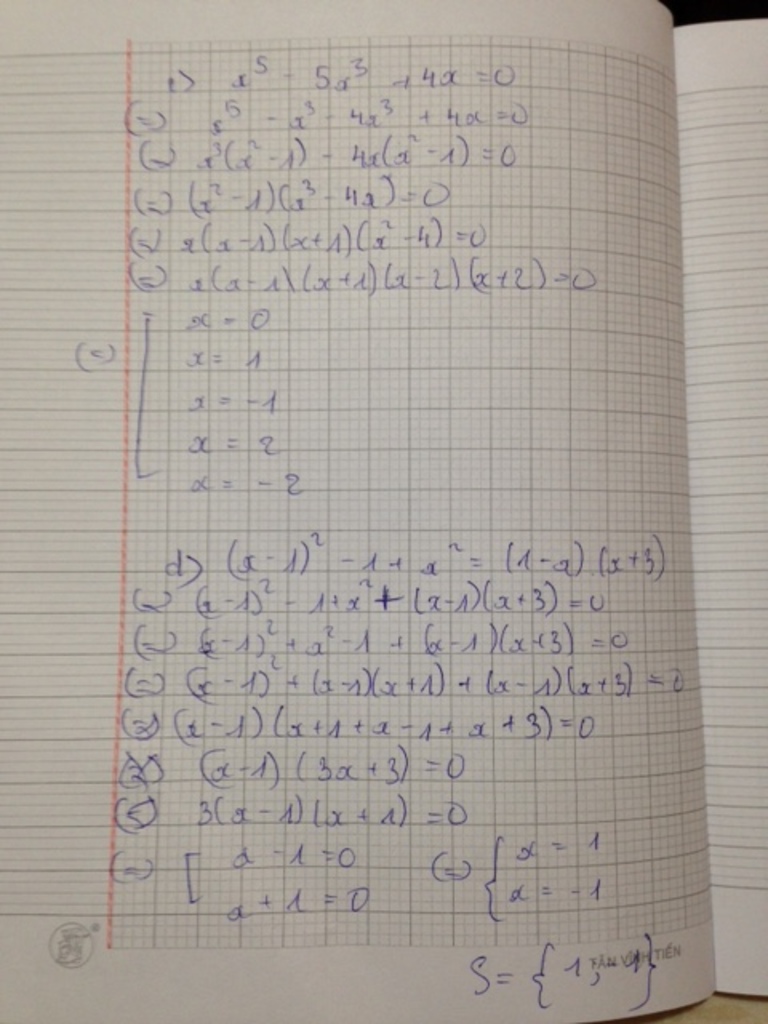 c) x⁵ - 5x³ + 4x = 0
(=) x⁵ - x³ - 4x³ + 4x = 0
(=) x³(x² - 1) - 4x(x² - 1) = 0
(=) (x² - 1)(x³ - 4x) = 0
(=) x(x - 1)(x + 1)(x² - 4) = 0
(=) x(x - 1)(x + 1)(x - 2)(x + 2) = 0
(=) [ x = 0
x = 1
x = -1
x = 2
x = -2
d) (x - 1)² - 1 + x² = (1 - x).(x + 3)
(=) (x - 1)² - 1 + x² + (x - 1)(x + 3) = 0
(=) (x - 1)² + x² - 1 + (x - 1)(x + 3) = 0
(=) (x - 1)² + (x - 1)(x + 1) + (x - 1)(x + 3) = 0
(=) (x - 1)(x + 1 + x - 1 + x + 3) = 0
(=) (x - 1)(3x + 3) = 0
(=) 3(x - 1)(x + 1) = 0
(=) [ x - 1 = 0 (=) { x = 1
x + 1 = 0 x = -1
S = { 1 ; -1 }
TÂN VĨNH TIẾN